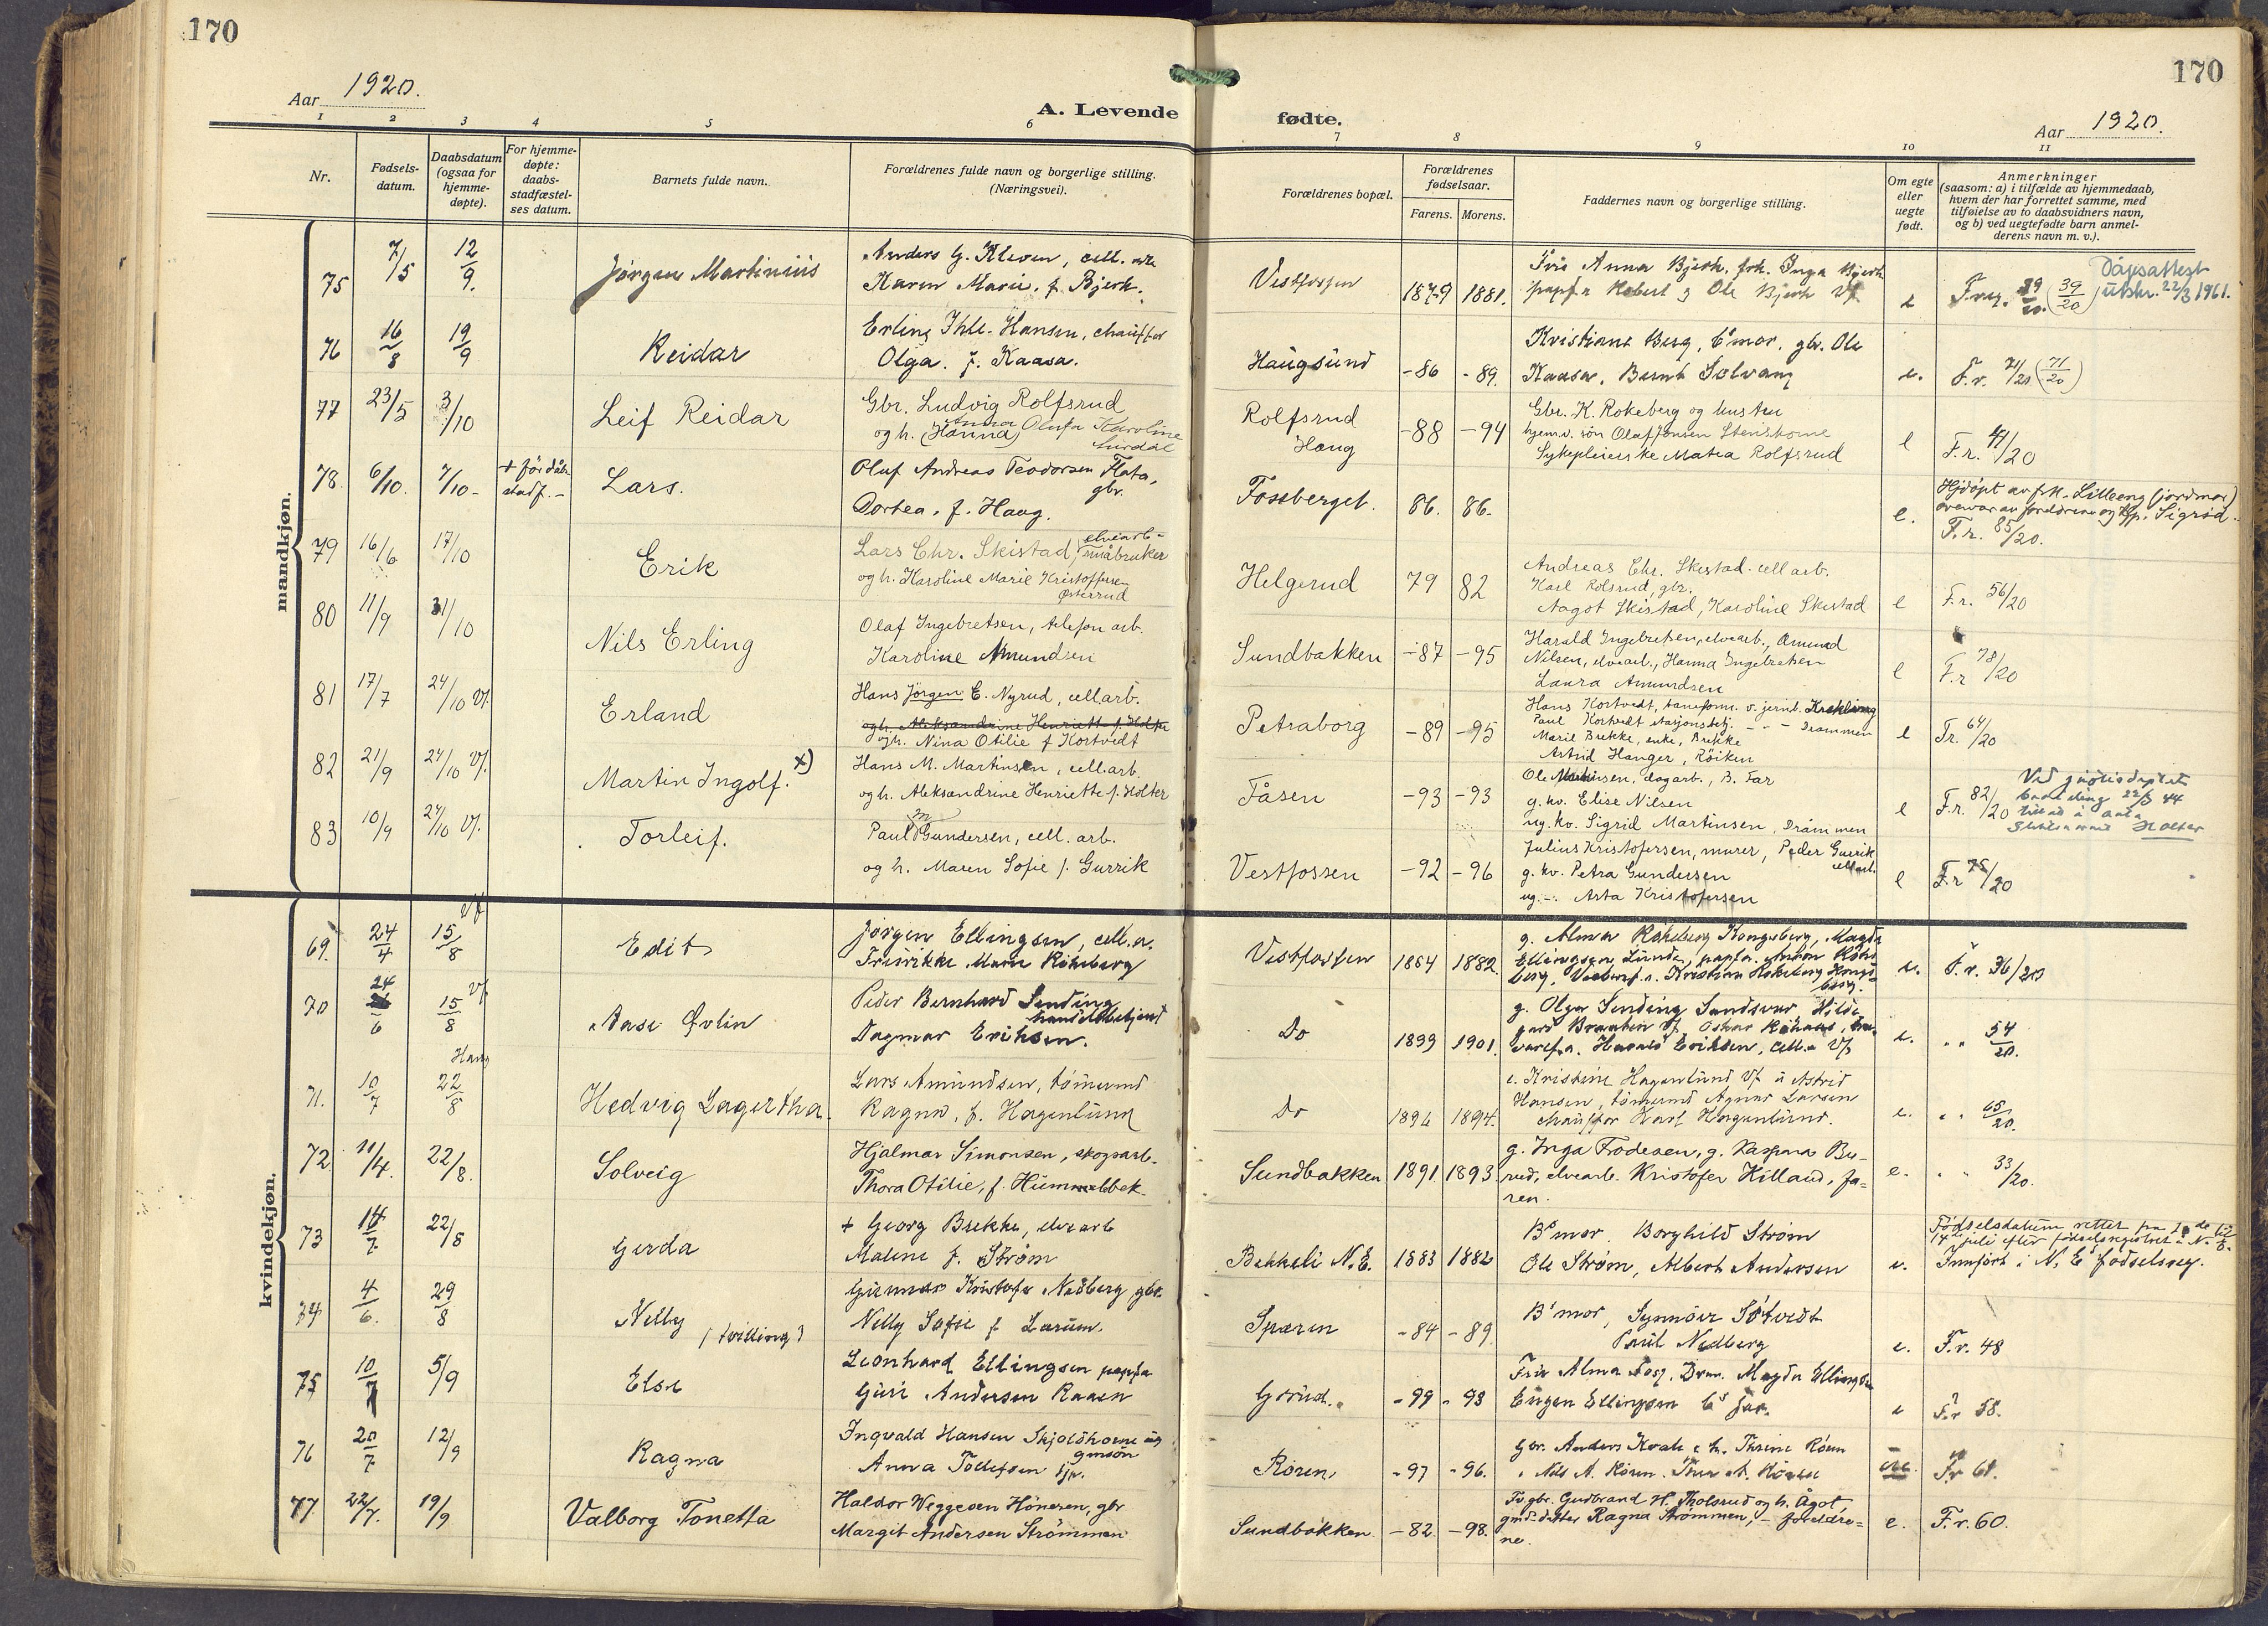 170
170
Aar 1920.
A. Levende fødte.
Aar 1920.
1 2 3 4 5 6 7 8 9 10 11
Nr.
Fødsels-
datum.
Daabsdatum
(ogsaa for
hjemme-
døpte).
For hjemme-
døpte:
daabs-
stadfæstel-
ses datum.
Barnets fulde navn.
Forældrenes fulde navn og borgerlige stilling.
(Næringsvei).
Forældrenes bopæl.
Forældrenes
fødselsaar.
Farens. Morens.
Faddernes navn og borgerlige stilling.
Om egte
eller
uegte
født.
Anmerkninger
(saasom: a) i tilfælde av hjemmedaab,
hvem der har forrettet samme, med
tilføielse av to daabsvidners navn,
og b) ved uegtefødte barn anmel-
derens navn m. v.).
mandkjøn.
75 7/5 12/9. Jörgen Martinius
Anders G. Kleven, cell.
Karen Marie, f. Bjerk.
Vestfossen 1879 1881.
Frü Anna Bjerk, frk. Inga Bjerk
papf.a Robert og Ole Bjerk Vf
e (39/20)
Dåpsattest
utskr. 22/3 1961.
76 16/8 19/9 Reidar
Erling Ihle-Hansen, chauffør
Olga. f. Kaasa.
Haugsund -86 -89.
Kristiane Berg, b's mor, gbr. Ole
Kaasa, Bernt Solvang
e. F.r. 71/20 (71/20)
77 23/5 3/10 Leif Reidar
Gbr. Ludvig Rolfsrud
og h. (Hanna) Anna Olufa Karoline
Surdal
Rolfsrud
Haug
-88 -94
Gbr. K. Rokeberg og hustru
hjemv. søn Olaf Jonsen Stenshorne
Sykepleierske Matea Rolfsrud
e F.r. 47/20
78. 6/10. 7/10- + før dåbs
stadf. -
Lars.
Oluf Andreas Teodorsen Flata,
gbr.
Dortea, f. Haug.
Fossberget. 86. 86.
e.
Hjdøpt av frk. Lilleeng (jordmor)
F.r. 85/20.
79 16/6 17/10 Erik
Lars Chr. Skistad, elvearb-
småbruker
og h. Karoline Marie Kristoffersen
Østerud
Helgerud 79 82
Andreas Chr. Skistad. cell arb.
Karl Rolsrud, gbr.
Aagot Skistad, Karoline Skistad
e F.r. 56/20
80 11/9 31/10 Nils Erling
Olaf Ingebretsen, telefon arb.
Karoline Amundsen
Sundbakken -87 -95
Harald Ingebretsen, elvearb., Amund
Nilsen, elvearb., Hanna Ingebretsen
Laura Amundsen
e F.r 78/20
81 17/7 24/10 Vf. Erland
Hans Jörgen E. Nyrud, cellarb.
og h. Aleksandrine Henriette f. Holter
og h. Nina Otilie f Kortvedt
Petraborg -89 -95
Hans Kortvedt, baneform. v. jernb. Krekling
Paul Kortvedt stasjonsbetj. - - - Drammen
Marie Brekke, enke, Brekke
Astrid Hanger, Röiken
e Fr. 64/20
82 21/9 24/10 Vf. Martin Ingolf. x)
Hans M. Martinsen, cell.arb.
og h. Aleksandrine Henriette f. Holter
Fåsen -93 -93
Ole Martinsen, dagarb., B. Far
g. kv. Elise Nilsen
ug. kv. Sigrid Martinsen, Drammen
e F.r. 82/20
Holter
83 10/9 24/10 Vf. Torleif.
Paul M Gundersen, cell. arb.
og h. Maren Sofie f. Gurrik
Vestfossen -92 -96
Julius Kristofersen, murer, Peder Gurrik
cellarb.
g. kv. Petra Gundersen
ug. -. Asta Kristofersen
e F.r 75/20
kvindekjøn.
69. 24/4 15/8 Vf Edit
Jørgen Ellingsen, cell.a.
Fredrikke Marie Rokeberg
Vestfossen 1884 1882.
g. Alma Rokeberg Kongsberg, Magda
Ellingsen, Lunde, papf.a. Anton Roke
berg, Kristian Rokeberg Kongs
berg.
e. F.r. 36/20
70 24/6 15/8 Vf. Aase Ovlin
Peder Bernhard Sending
handelsbetjent
Dagmar Eriksen.
Do 1899 1901.
g. Olga Sending Sandsvær, Hilde
gard Braaten Vf, Oskar
Harald Eriksen, cell.a Vf
e. " " 54/20.
71. 10/7 22/8 Haug Hedvig Lagertha.
Lars Amundsen, tömmermd
Ragna, f. Hagenlund
Do 1896 1894.
e. Kristine Hagenlund Vf ü Astrid
Hansen, tömmermd Agnar Larsen
chauffør Karl Hagenlund.
e. " " 65/20.
72 11/4. 22/8. Solveig
Hjalmar Simonsen, skogsarb.
Thora Otilie, f. Hummelbek.
Sundbakken 1891 1893
g. Inga Frodesen, g. Kaspara Bu-
rud, elvearb. Kristofer Killand, fa=
ren.
e. " " 33/20.
73 14/7 22/8 Gerda
+ Georg Brekke, elvearb
Malene f. Strøm
Bekkeli N.E. 1883 1882
B's mor, Borghild Strøm
Ole Strøm, Albert Andersen
e.
Fødselsdatum rettet fra til
14de juli efter fødselsregistret i N. E.
Innført i N. E fødselsreg.
74 4/6. 29/8 Nelly (tvilling)
Gunnar Kristofer Nedberg, gbr.
Nelly Sofie f. Larum.
Sparen -84 -89
B's mor, Synnöve Sötvedt
Paul Nedberg
e. F.r. 48
75 10/7 5/9 Else
Leonhard Ellingsen papfa
Guri Andersen Raaen
Gorud. -99 -93
Frü Alma Fosj. Drm. Magda Ellingsen
Eugen Ellingsen b's far.
e F.r 58.
76 20/7 12/9 Ragna
Ingvald Hansen Skjoldhorne ug
gmsön
Anna Tollefsen tj.
Rören -97 -96.
Gbr. Anders Kvale e h. Thrine Rören
" Nils A. Rören.
ue. Fr 61.
77. 22/7. 19/9 Valborg Tonetta
Haldor Veggesen Hönesen, gbr
Margit Andersen Strömmen
Sundbakken. -82. -98.
Fv. gbr. Gudbrand H. Tholsrud og h. Ågot,
gmd.datter Ragna Strömmen, - foreldre=
ne.
e. F.r. 60.